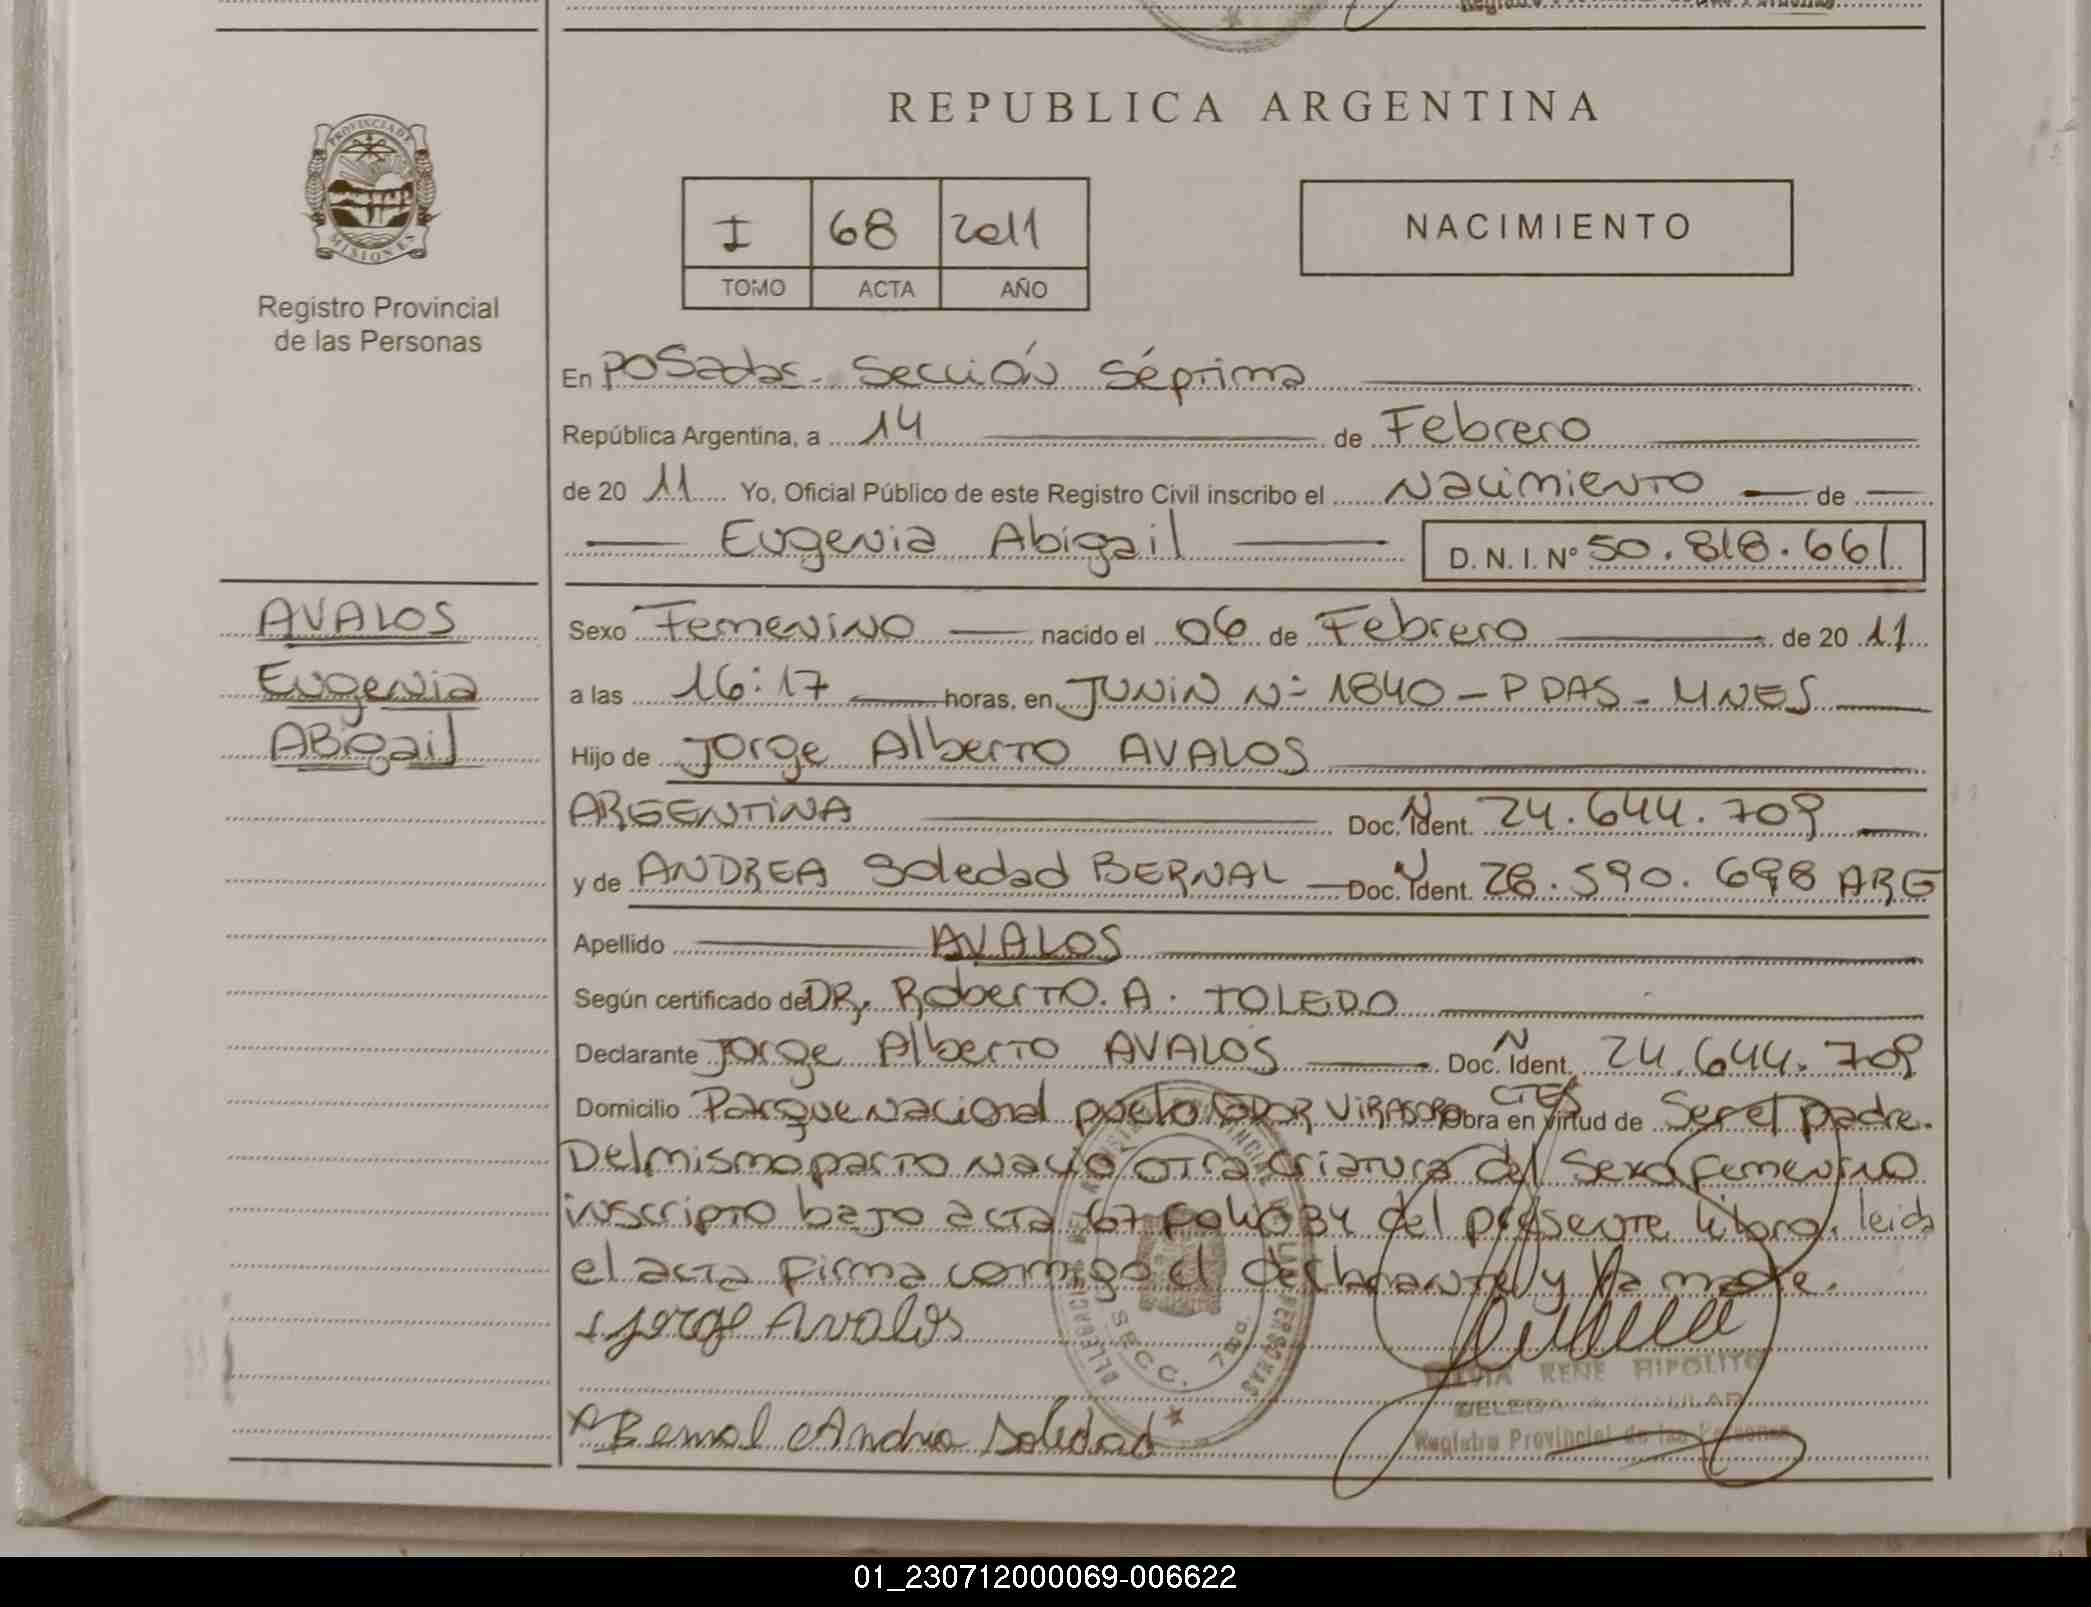 REPUBLICA ARGENTINA
PROVINCIA DE
MISIONES
Registro Provincial
de las Personas
I 68 2011
TOMO ACTA AÑO
NACIMIENTO
En Posadas - Sección Séptima
República Argentina, a 14 de Febrero
de 20 11 Yo, Oficial Público de este Registro Civil inscribo el Nacimiento de
Eugenia Abigail D. N. I. N° 50.818.661
AVALOS
Eugenia
ABigail
Sexo Femenino nacido el 06 de Febrero de 20 11
a las 16:17 horas, en JUNIN N° 1840 - PDAS - MNES
Hijo de Jorge Alberto AVALOS
ARGENTINA Doc. N Ident. 24.644.709
y de ANDREA Soledad BERNAL Doc. N Ident. 28.590.698 ARG
Apellido AVALOS
Según certificado de DR. Roberto. A. TOLEDO
Declarante Jorge Alberto AVALOS Doc. N Ident. 24.644.709
Domicilio Parque Nacional VIRASORO CTES Obra en virtud de Ser el padre.
Del mismo parto nacio otra criatura del sexo femenino
inscripto bajo acta 67 folio 34 del presente libro. leida
el acta firma conmigo el declarante y la madre.
Jorge Avalos
SECC. 7ma.
RENE HIPOLITO
Registro Provincial de las Personas
Bernal Andrea Soledad
01_230712000069-006622